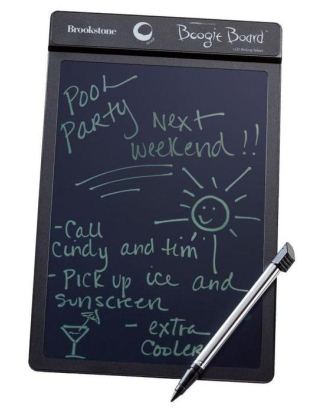 Brookstone
Boogie Board
LCD Writing Tablet
POOL
PARTY Next
weekend!!
- Call
Cindy and tim
- Pick up ice and
sunscreen
- extra
Cooler